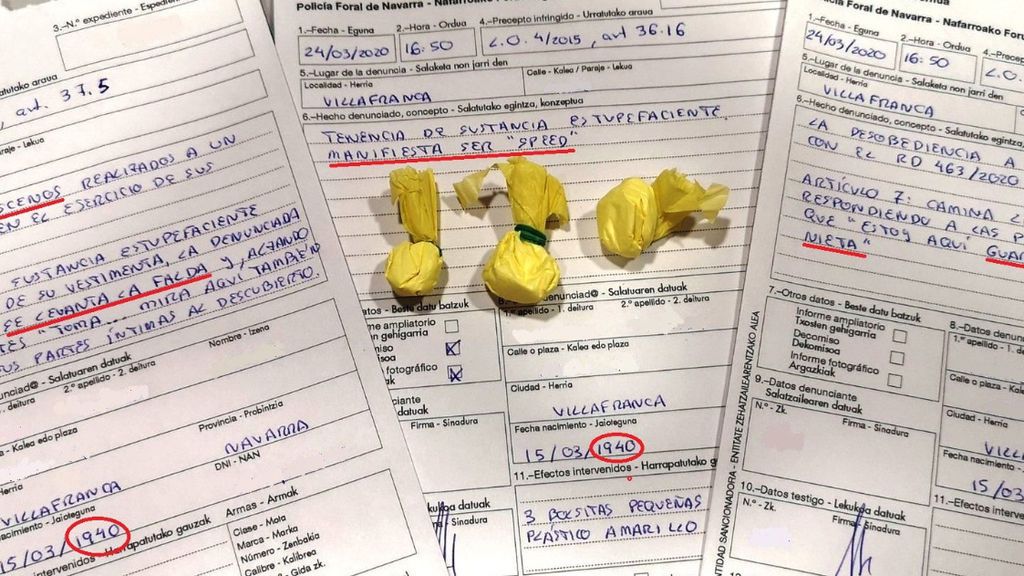 3.-N.º expediente - Expedien
tutako araua
, art. 37.5
raje - Lekua
SCENOS REALIZADOS A UN
EN EL EJERCICIO DE SUS
SUSTANCIA ESTUPEFACIENTE
DE SU VESTIMENTA, LA DENUNCIADA
SE LEVANTA LA FALDA Y, ALZANDO
"TOMA... MIRA AQUÍ TAMBIÉN
SUS PARTES ÍNTIMAS AL DESCUBIERTO.
unciad@ - Salatuaren datuak
Nombre - Izena
. deitura
2.º apellido - 2. deitura
- Kalea edo plaza
Provincia - Probintzia
NAVARRA
Herria
DNI - NAN
VILLAFRANCA
nacimiento - Jaioteguna
15/03/1940
intervenidos - Harrapatutako gauzak
Armas - Armak
Clase - Mota
Marca - Marka
Número - Zenbakia
Calibre - Kalibrea
- Gida zk.
Policía Foral de Navarra - Nafarroako Foruzaingoa
1.-Fecha - Eguna
2.-Hora - Ordua
4.-Precepto infringido - Urratutako araua
24/03/2020
16:50
L.O. 4/2015, art 36.16
5.-Lugar de la denuncia - Salaketa non jarri den
Localidad - Herria
Calle - Kalea / Paraje - Lekua
VILLAFRANCA
6.-Hecho denunciado, concepto - Salatutako egintza, konzeptua
TENENCIA DE SUSTANCIA ESTUPEFACIENTE.
MANIFIESTA SER "SPEED"
- Beste datu batzuk
me ampliatorio
n gehigarria
miso
isoa
fotográfico
ak
denunciad@ - Salatuaren datuak
1.º apellido - 1. deitura
2.º apellido - 2. deitura
Calle o plaza - Kalea edo plaza
Ciudad - Herria
VILLAFRANCA
Fecha nacimiento - Jaioteguna
15/03/1940
11.-Efectos intervenidos - Harrapatutako g
3 BOLSITAS PEQUEÑAS
PLÁSTICO AMARILLO
ciante
datuak
Firma - Sinadura
Lekukoa datuak
Sinadura
Policía Foral de Navarra - Nafarroako Foru
1.-Fecha - Eguna
2.-Hora - Ordua
4.-Precep
24/03/2020
16:50
L.O.
5.-Lugar de la denuncia - Salaketa non jarri den
Localidad - Herria
VILLAFRANCA
6.-Hecho denunciado, concepto - Salatutako egintza,
LA DESOBEDIENCIA A
CON EL RD 463/2020
ARTÍCULO 7: CAMINA
RESPONDIENDO A LAS P
QUE "ESTOY AQUÍ GUAR
NIETA"
7.-Otros datos - Beste datu batzuk
Informe ampliatorio
Txosten gehigarria
Decomiso
Dekomisoa
Informe fotográfico
Argazkiak
8.-Datos denun
1.º apellido - 1. dei
Calle o plaza - Kale
9.-Datos denunciante
Salatzailearen datuak
N.º - Zk.
Firma - Sinadura
Ciudad - Herria
VILL
Fecha nacimiento -
15/03
10.-Datos testigo - Lekukoa datuak
N.º - Zk.
Firma - Sinadura
11.-Efectos interven
ENTIDAD SANCIONADORA - ENTITATE ZEHATZAILEARENTZAKO ALEA